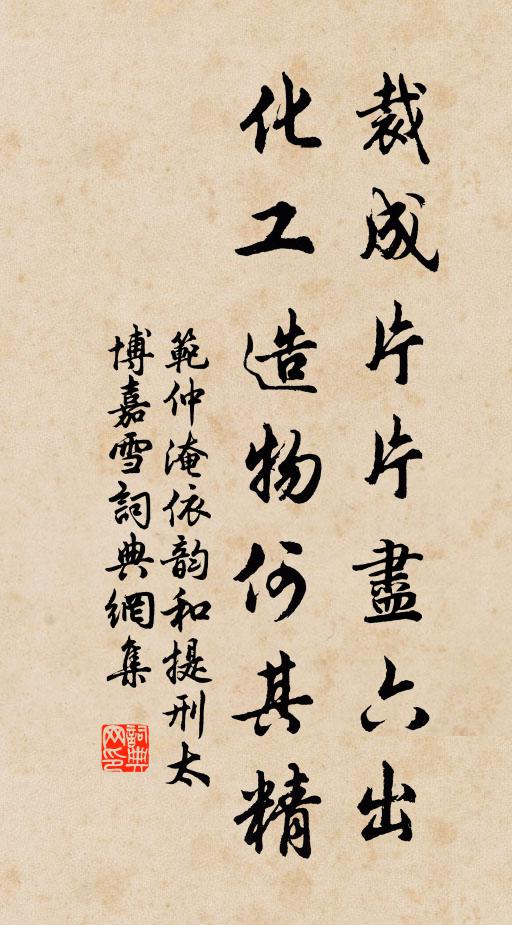 裁成片片盡六出
化工造物何其精
範仲淹依韵和提刑太
博嘉雪詞典網集
詞典
网印